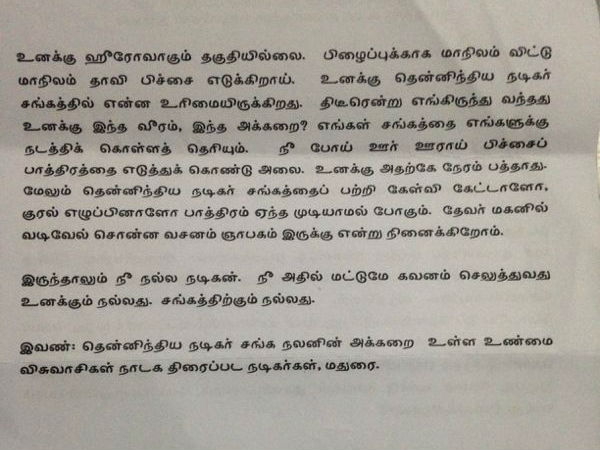 உனக்கு ஹீரோவாகும் தகுதியில்லை. பிழைப்புக்காக மாநிலம் விட்டு
மாநிலம் தாவி பிச்சை எடுக்கிறாய். உனக்கு தென்னிந்திய நடிகர்
சங்கத்தில் என்ன உரிமையிருக்கிறது. திடீரென்று எங்கிருந்து வந்தது
உனக்கு இந்த வீரம், இந்த அக்கறை? எங்கள் சங்கத்தை எங்களுக்கு
நடத்திக் கொள்ளத் தெரியும். நீ போய் ஊர் ஊராய் பிச்சைப்
பாத்திரத்தை எடுத்துக் கொண்டு அலை. உனக்கு அதற்கே நேரம் பத்தாது.
மேலும் தென்னிந்திய நடிகர் சங்கத்தைப் பற்றி கேள்வி கேட்டாளோ,
குரல் எழுப்பினாளோ பாத்திரம் ஏந்த முடியாமல் போகும். தேவர் மகனில்
வடிவேல் சொன்ன வசனம் ஞாபகம் இருக்கு என்று நினைக்கிறோம்.
இருந்தாலும் நீ நல்ல நடிகன். நீ அதில் மட்டுமே கவனம் செலுத்துவது
உனக்கும் நல்லது. சங்கத்திற்கும் நல்லது.
இவண்: தென்னிந்திய நடிகர் சங்க நலனின் அக்கறை உள்ள உண்மை
விசுவாசிகள் நாடக திரைப்பட நடிகர்கள், மதுரை.